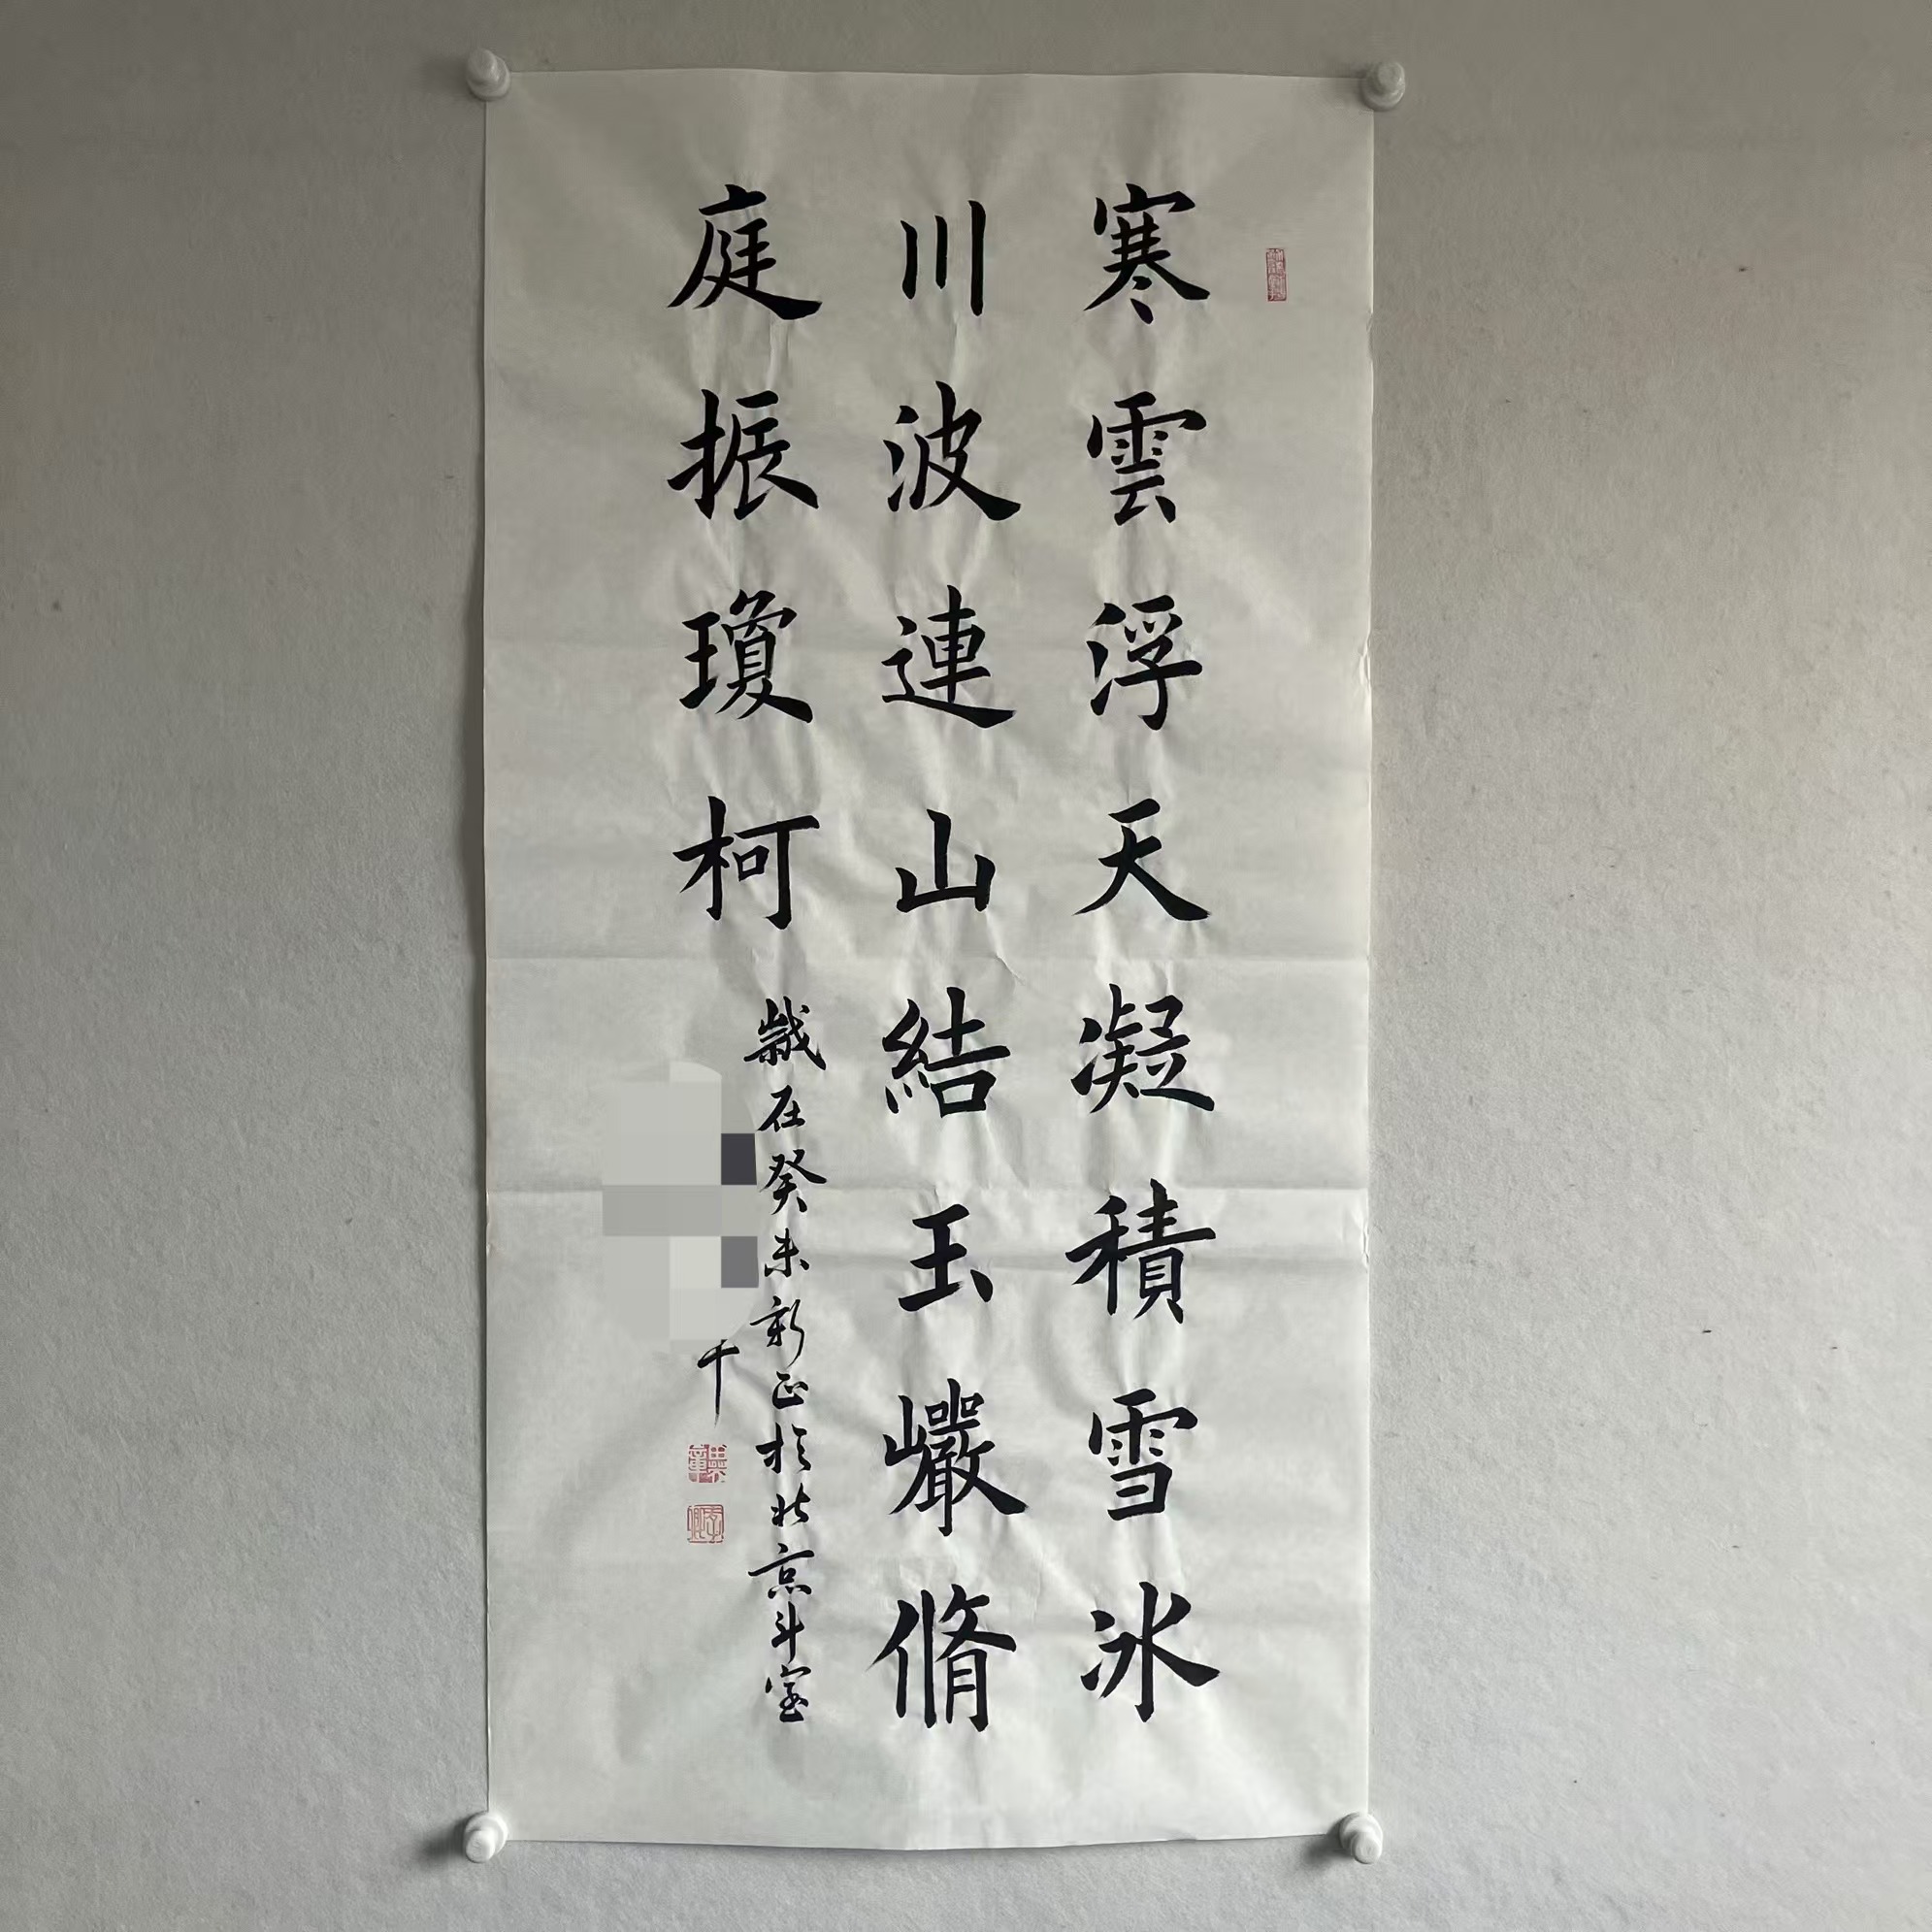 寒雲浮天凝積雪冰
川波連山結玉巖脩
庭振瓊柯
歲在癸未新正於北京斗室